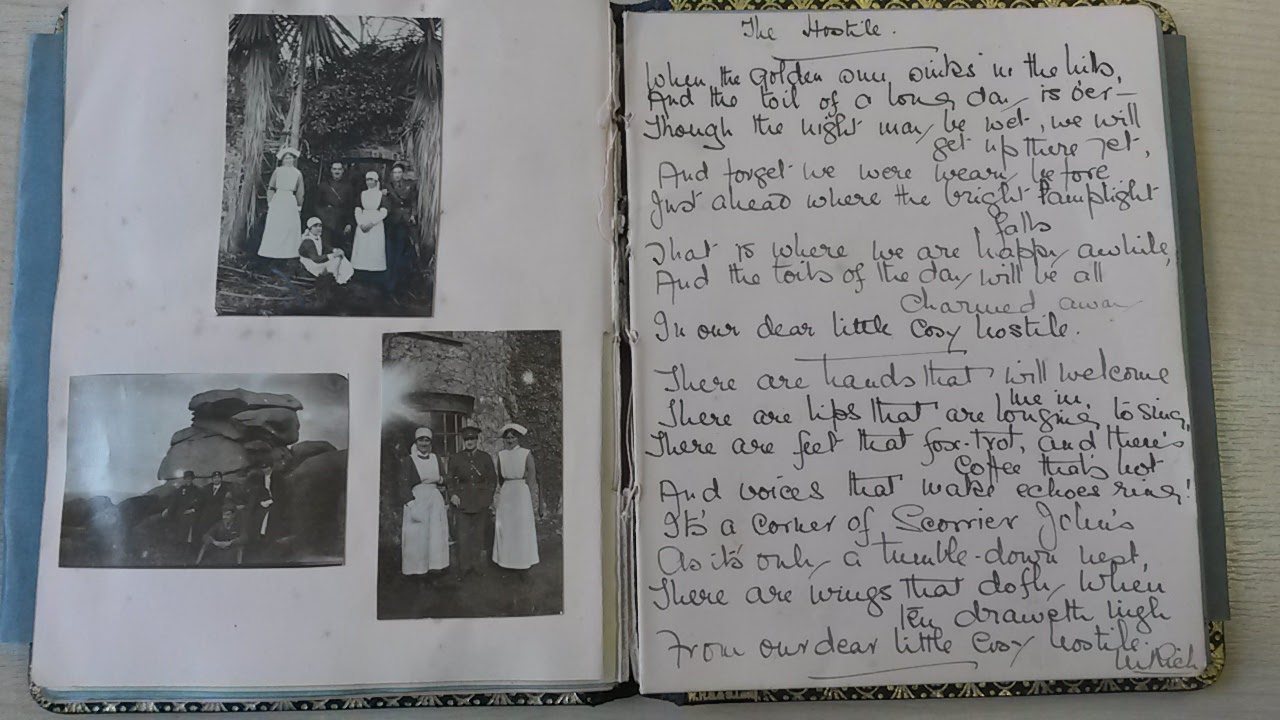 The Hostile.
When the golden sun sinks in the hills,
And the toil of a long day is o'er—
Though the night may be wet, we will
get up there yet,
And forget we were weary before
Just ahead where the bright lamplight
falls
That is where we are happy awhile,
And the toils of the day will be all
charmed away
In our dear little cosy hostile.
There are hands that will welcome
me in,
There are lips that are longing to sing,
There are feet that fox-trot, and there's
coffee that's hot
And voices that make echoes ring!
It's a corner of Scorrier John's
As it's only a tumble-down nest,
There are wings that doth, when
ten draweth nigh
From our dear little cosy hostile.
Rich